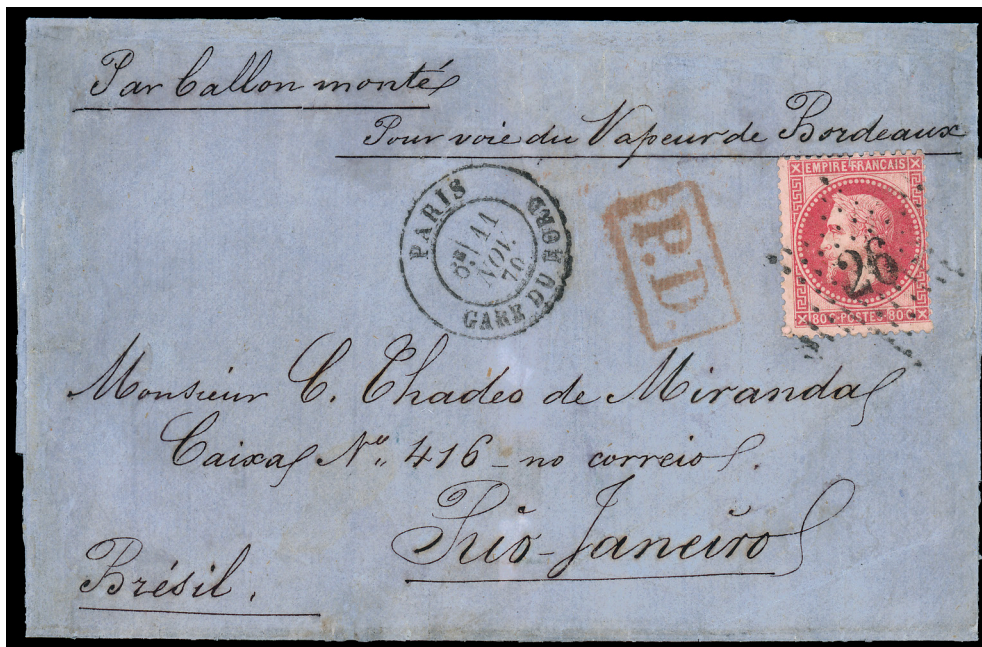 Par Ballon monté
Pour voie du Vapeur de Bordeaux
PARIS
6E/ 11
NOV.
70
GARE DU NORD
P.D.
EMPIRE FRANÇAIS
26
80 C POSTES 80 C
Monsieur C. Thadeo de Miranda
Caixa No. 416 - no correio.
Rio-Janeiro
Brésil.